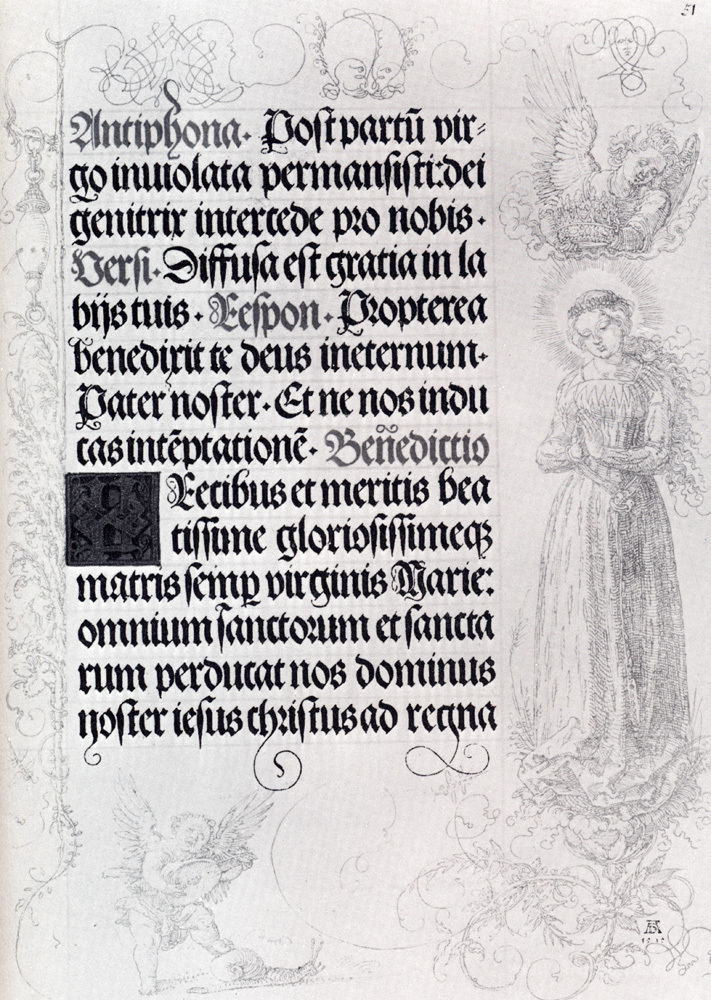 51
Antiphona. Post partū vir⸗
go inuiolata permansisti: dei
genitrix intercede pro nobis.
Versi. Diffusa est gratia in la
bijs tuis. Respon. Propterea
benedixit te deus ineternum.
Pater noster. Et ne nos indu
cas in tēptationē. Bene᷑dictio
PRecibus et meritis bea
tissime gloriosissimeqꝫ
matris semꝑ virginis Marie:
omnium sanctorum et sancta
rum perducat nos dominus
noster iesus christus ad regna
AD